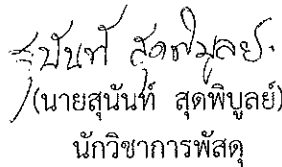 สุนันท์ สุดพิบูลย์
(นายสุนันท์ สุดพิบูลย์)
นักวิชาการพัสดุ